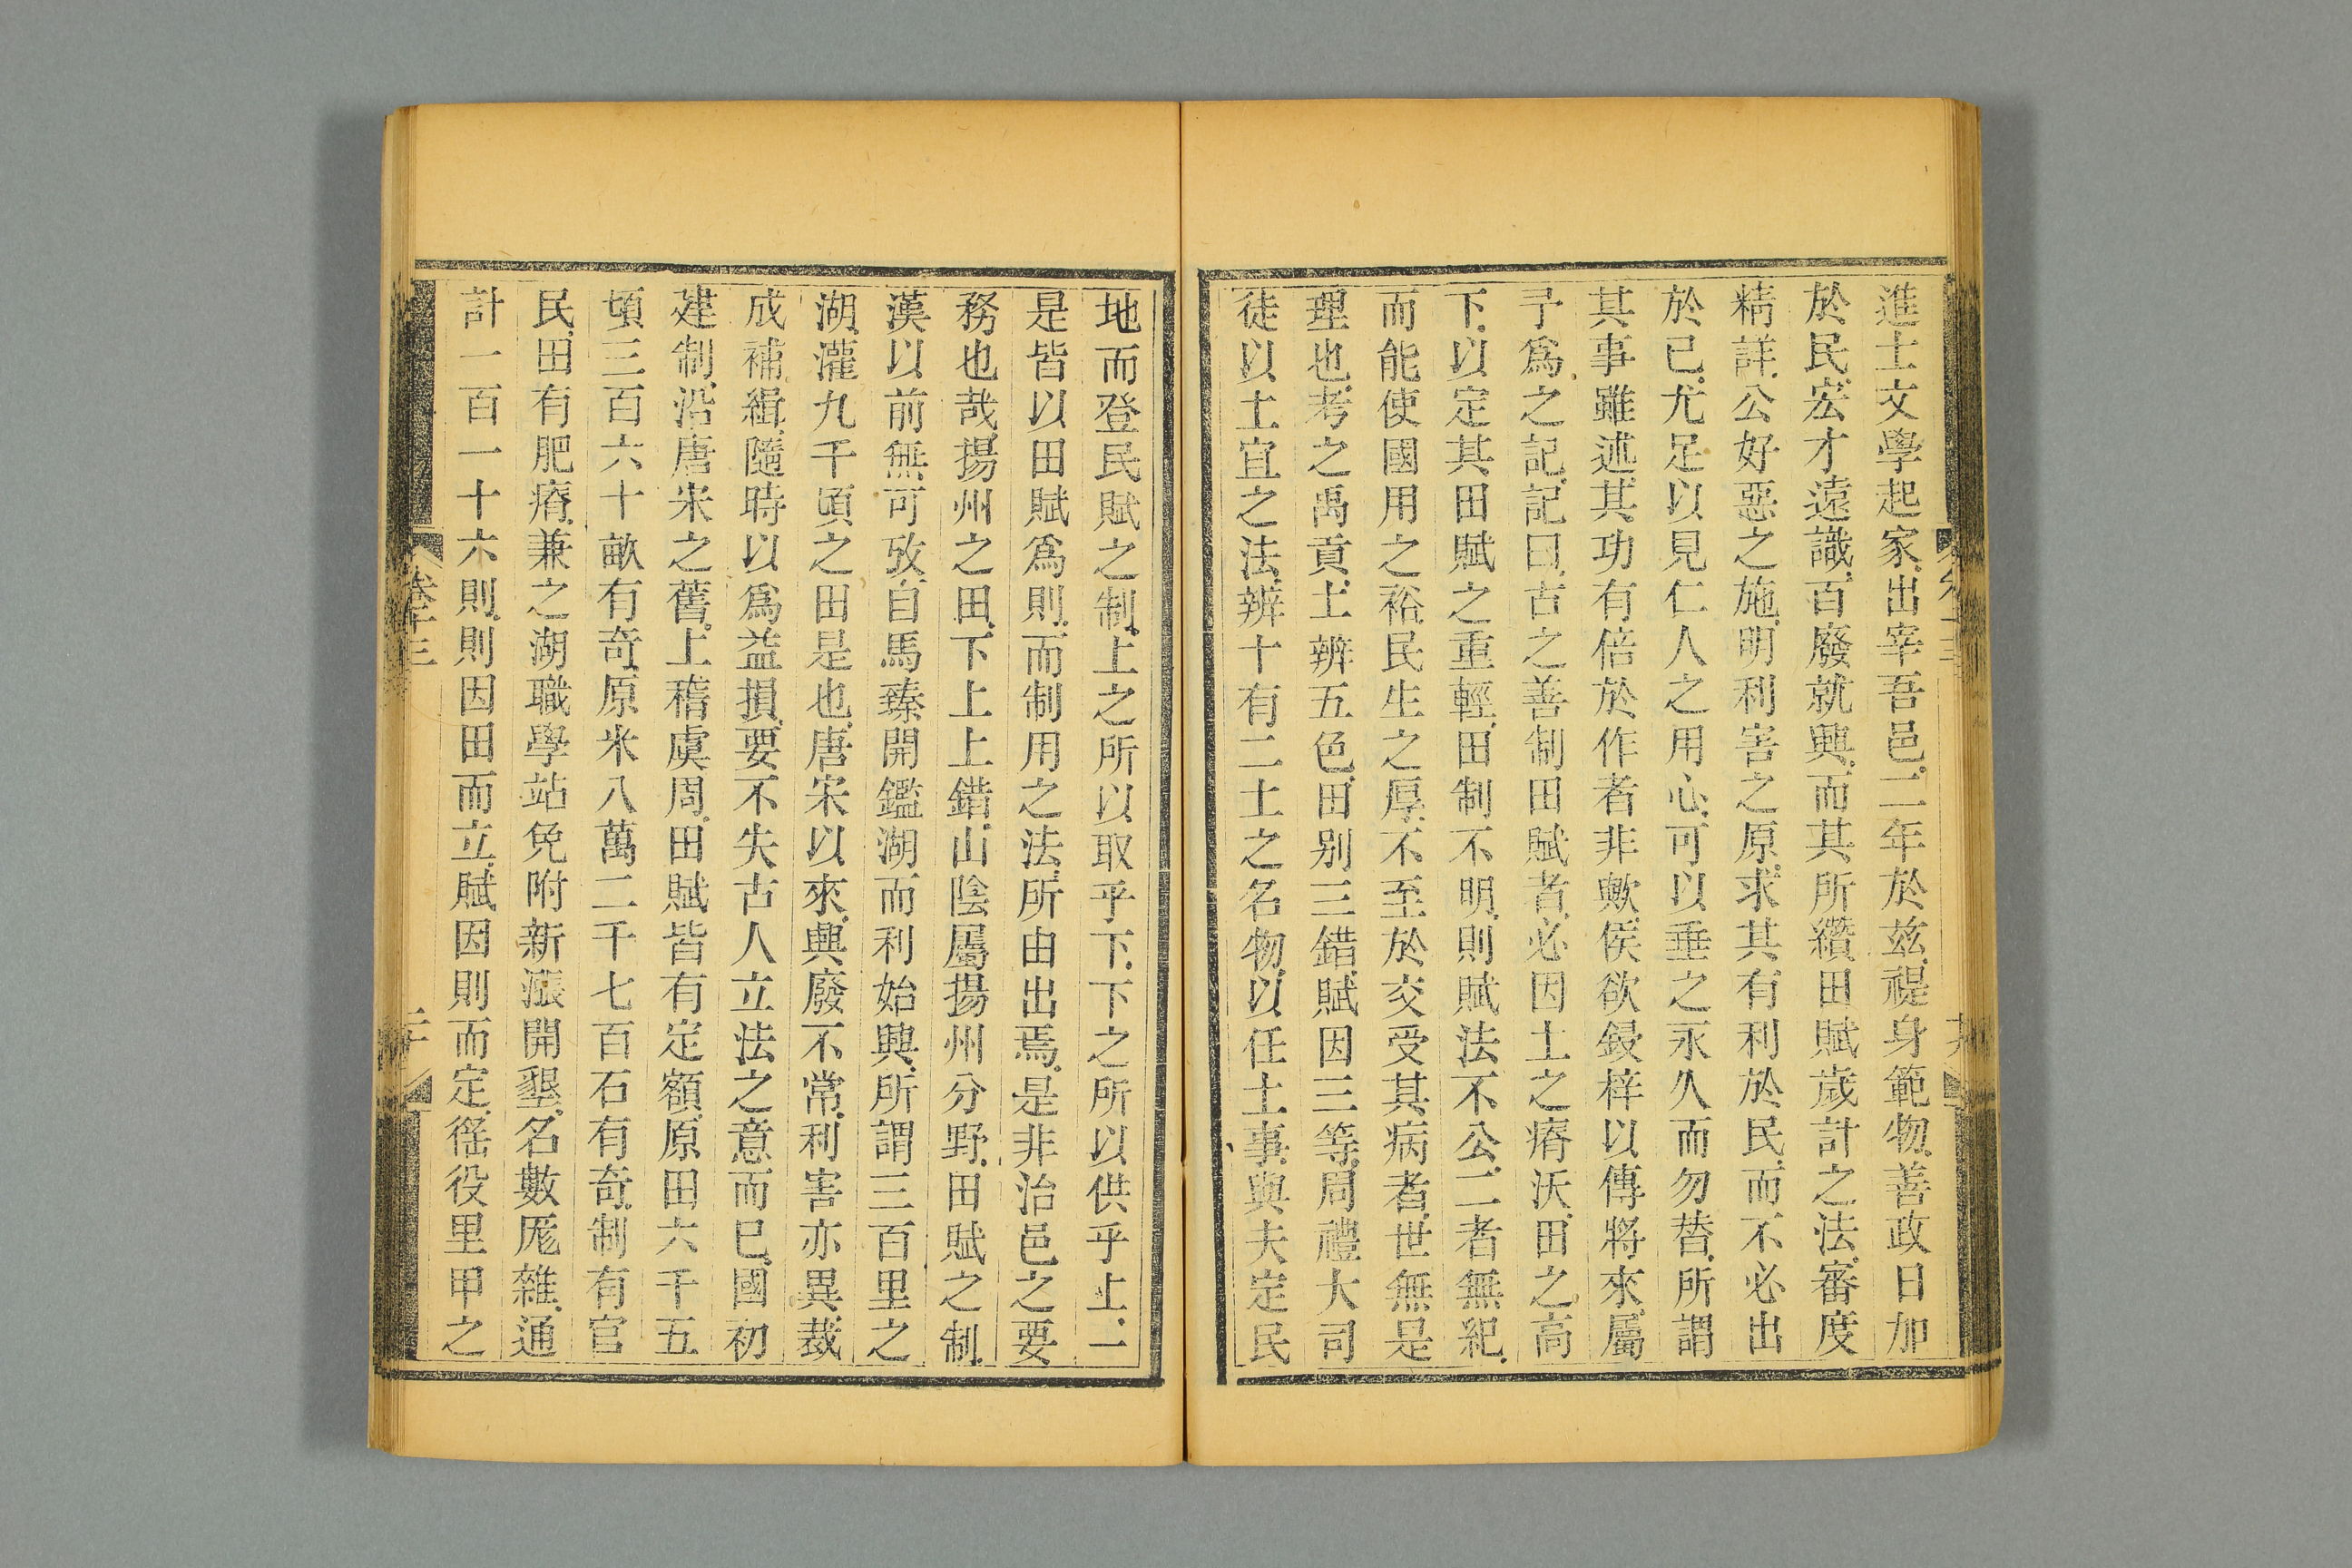 進士文學起家出宰吾邑二年於兹禔身範物善政日加
於民宏才遠識百廢就興而其所纘田賦歲計之法審度
精詳公好惡之施明利害之原求其有利於民而不必出
於已尤足以見仁人之用心可以垂之永久而勿替所謂
其事雖述其功有倍於作者非歟侯欲鋟梓以傳將來屬
予爲之記記曰古之善制田賦者必因土之瘠沃田之高
下以定其田賦之重輕田制不明則賦法不公二者無紀
而能使國用之裕民生之厚不至於交受其病者世無是
理也考之禹貢土辨五色田别三錯賦因三等周禮大司
徒以土宜之法辨十有二土之名物以任土事與夫定民
地而登民賦之制上之所以取乎下下之所以供乎上一
是皆以田賦爲則而制用之法所由出焉是非治邑之要
務也哉揚州之田下上上錯山陰屬揚州分野田賦之制
漢以前無可攷自馬臻開鑑湖而利始興所謂三百里之
湖灌九千頃之田是也唐宋以來興廢不常利害亦異裁
成補緝隨時以爲益損要不失古人立法之意而已國初
建制沿唐宋之舊上稽虞周田賦皆有定額原田六千五
頃三百六十畝有奇原米八萬二千七百石有奇制有官
民田有肥瘠兼之湖職學站免附新漲開墾名數厖雜通
計一百一十六則則因田而立賦因則而定徭役里甲之
卷十三
二十